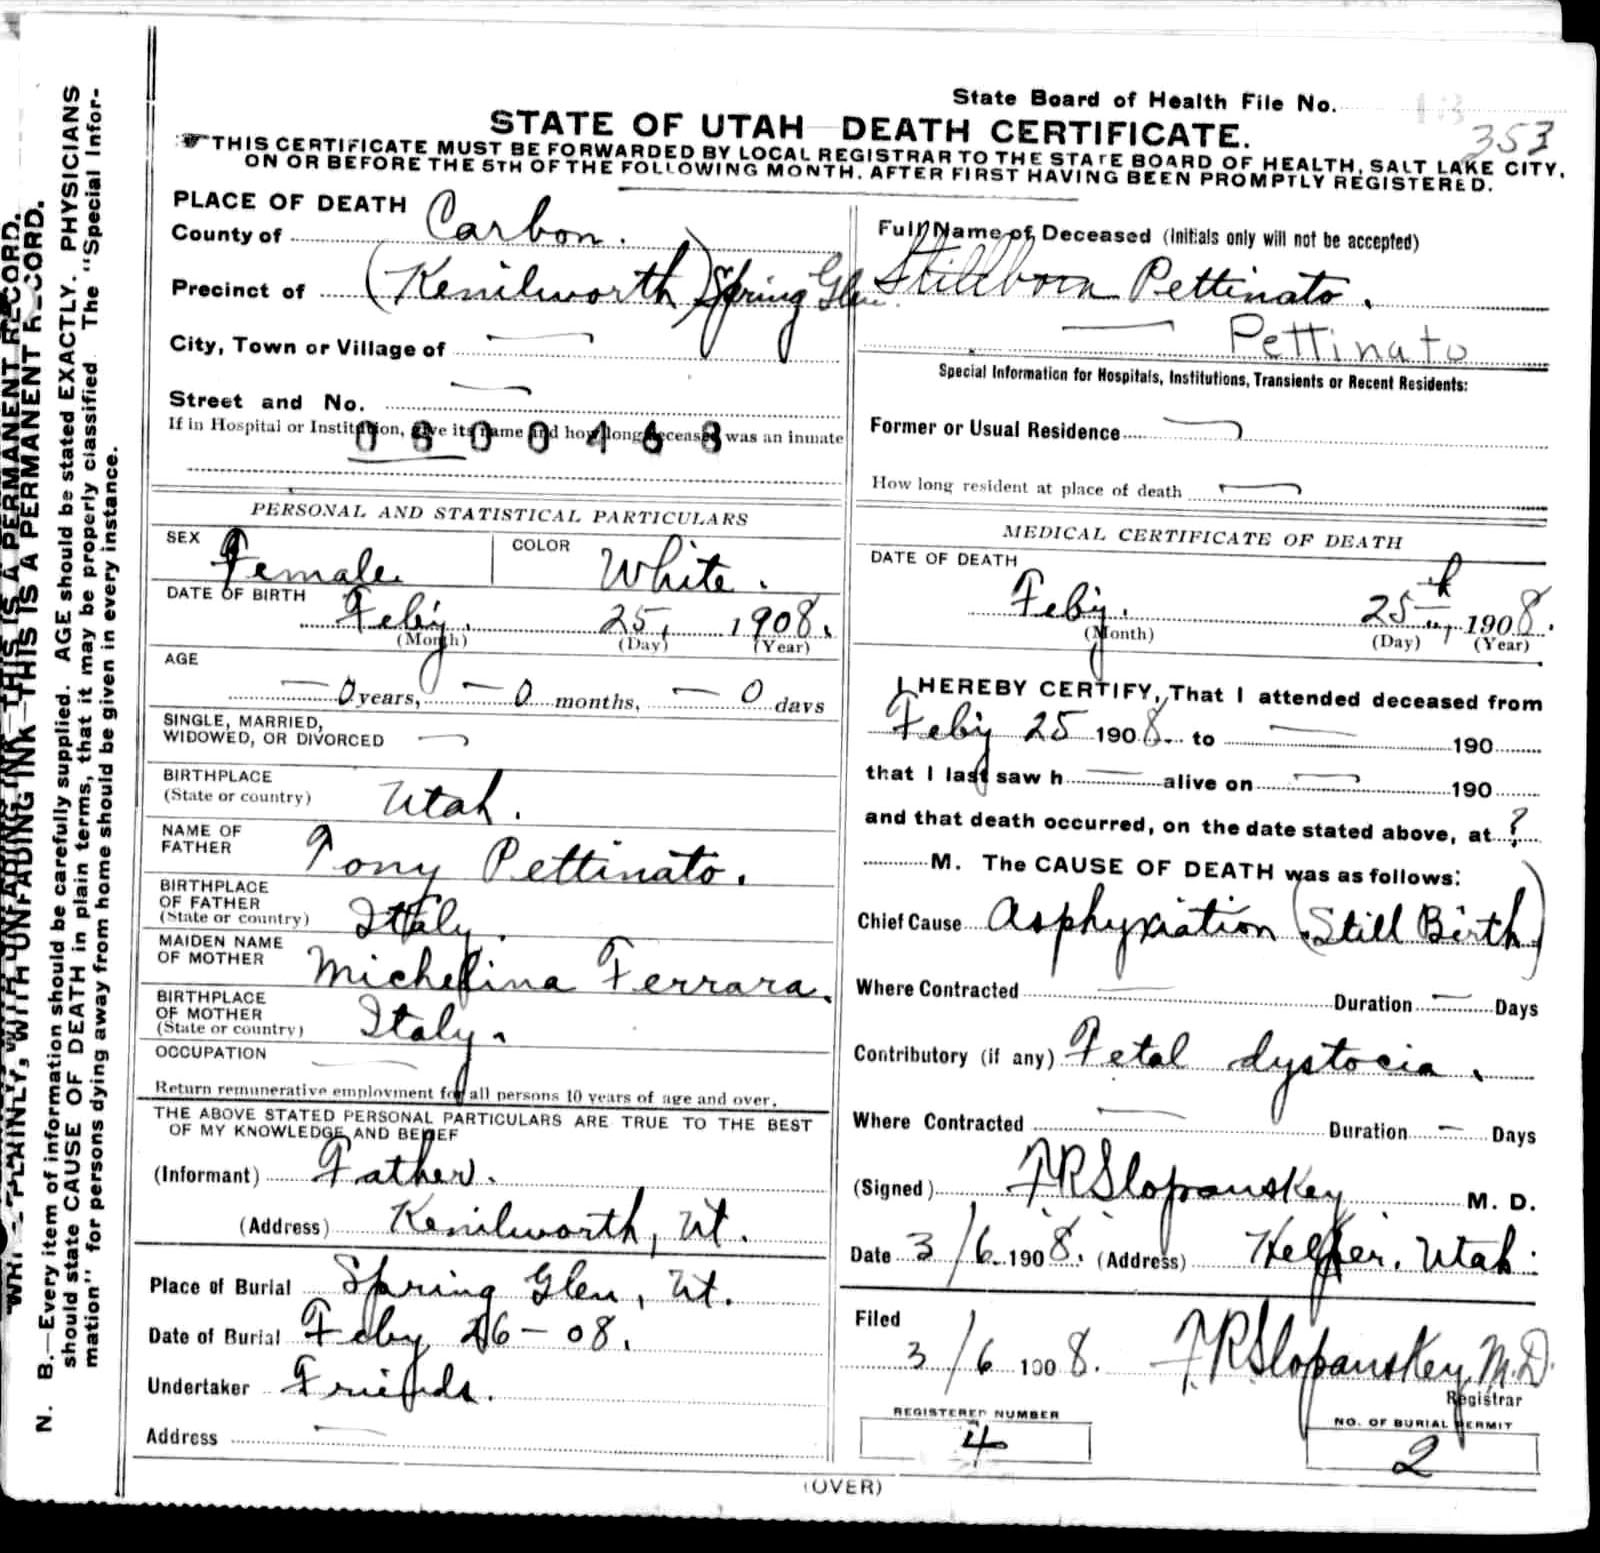 State Board of Health File No.
353
STATE OF UTAH DEATH CERTIFICATE.
THIS CERTIFICATE MUST BE FORWARDED BY LOCAL REGISTRAR TO THE STATE BOARD OF HEALTH, SALT LAKE CITY,
ON OR BEFORE THE 5TH OF THE FOLLOWING MONTH. AFTER FIRST HAVING BEEN PROMPTLY REGISTERED.
PLACE OF DEATH
County of Carbon.
Precinct of (Kenilworth) Spring Glen
City, Town or Village of —
Street and No. —
If in Hospital or Institution, give its name and how long deceased was an inmate
0800468
Full Name of Deceased (Initials only will not be accepted)
Stillborn Pettinato.
— Pettinato
Special Information for Hospitals, Institutions, Transients or Recent Residents:
Former or Usual Residence —
How long resident at place of death —
PERSONAL AND STATISTICAL PARTICULARS
SEX Female.
COLOR White.
DATE OF BIRTH
Feby. 25, 1908.
(Month) (Day) (Year)
AGE
— 0 years, — 0 months, — 0 days
SINGLE, MARRIED,
WIDOWED, OR DIVORCED —
BIRTHPLACE
(State or country) Utah.
NAME OF
FATHER Tony Pettinato.
BIRTHPLACE
OF FATHER
(State or country) Italy.
MAIDEN NAME
OF MOTHER Michelina Ferrara.
BIRTHPLACE
OF MOTHER
(State or country) Italy.
OCCUPATION —
Return remunerative employment for all persons 10 years of age and over.
THE ABOVE STATED PERSONAL PARTICULARS ARE TRUE TO THE BEST
OF MY KNOWLEDGE AND BELIEF
(Informant) Father.
(Address) Kenilworth, Ut.
Place of Burial Spring Glen, Ut.
Date of Burial Feby 26-08.
Undertaker Friends.
Address —
MEDICAL CERTIFICATE OF DEATH
DATE OF DEATH
Feby. 25th, 1908.
(Month) (Day) (Year)
I HEREBY CERTIFY, That I attended deceased from
Feby 25 1908 to — 190
that I last saw h — alive on — 190
and that death occurred, on the date stated above, at ?
M. The CAUSE OF DEATH was as follows:
Chief Cause Asphyxiation (Still Birth)
Where Contracted — Duration — Days
Contributory (if any) Fetal dystocia.
Where Contracted — Duration — Days
(Signed) F R Slopanskey M. D.
Date 3/6 1908. (Address) Helper, Utah.
Filed
3/6 1908. F R Slopanskey M.D.
Registrar
REGISTERED NUMBER
4
NO. OF BURIAL PERMIT
2
(OVER)
N. B.—Every item of information should be carefully supplied. AGE should be stated EXACTLY. PHYSICIANS
should state CAUSE OF DEATH in plain terms, that it may be properly classified. The "Special Infor-
mation" for persons dying away from home should be given in every instance.
PLAINLY, WITH UNFADING INK—THIS IS A PERMANENT RECORD.